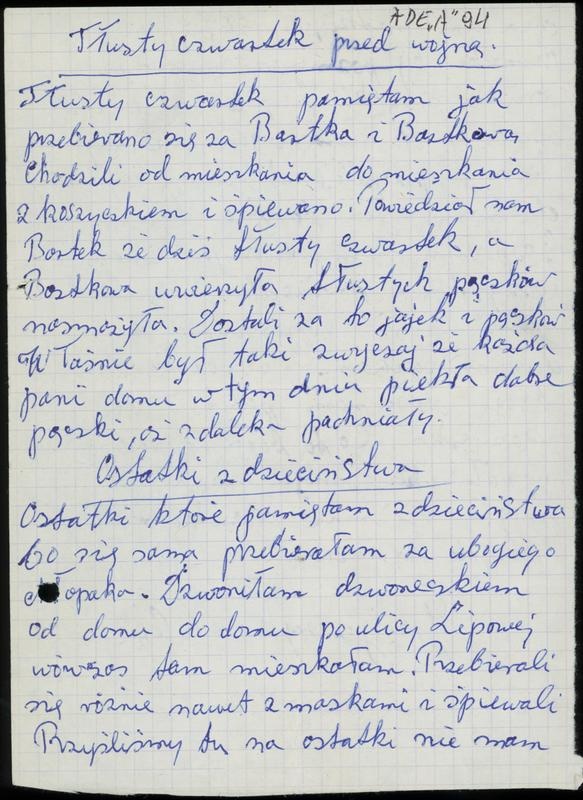 ADE„A" 94
Tłusty czwartek przed wojną.
Tłusty czwartek pamiętam jak
przebierano się za Bartka i Bartkową
Chodzili od mieszkania do mieszkania
z koszyczkiem i śpiewano. Powiedział nam
Bartek że dziś tłusty czwartek, a
Bartkowa uwierzyła tłustych pączków
nasmażyła. Dostali za to jajek i pączków
Właśnie był taki zwyczaj że każda
pani domu w tym dniu piekła dobre
pączki, aż z daleka pachniały.
Ostatki z dzieciństwa
Ostatki które pamiętam z dzieciństwa
bo się sama przebierałam za ubogiego
chłopaka. Dzwoniłam dzwoneczkiem
od domu do domu po ulicy Lipowej
wówczas tam mieszkałam. Przebierali
się różnie nawet z maskami i śpiewali
Przyśliśmy tu na ostatki nie mam